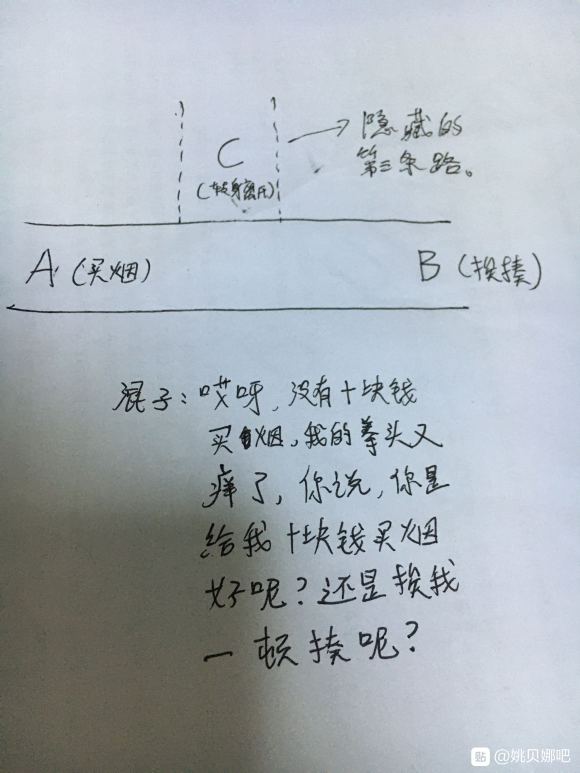 C
(转身离开)
隐藏的
第三条路。
A (买烟)
B (挨揍)
混子:哎呀,没有十块钱
买烟,我的拳头又
痒了,你说,你是
给我十块钱买烟
好呢?还是挨我
一顿揍呢?
贴 @姚贝娜吧